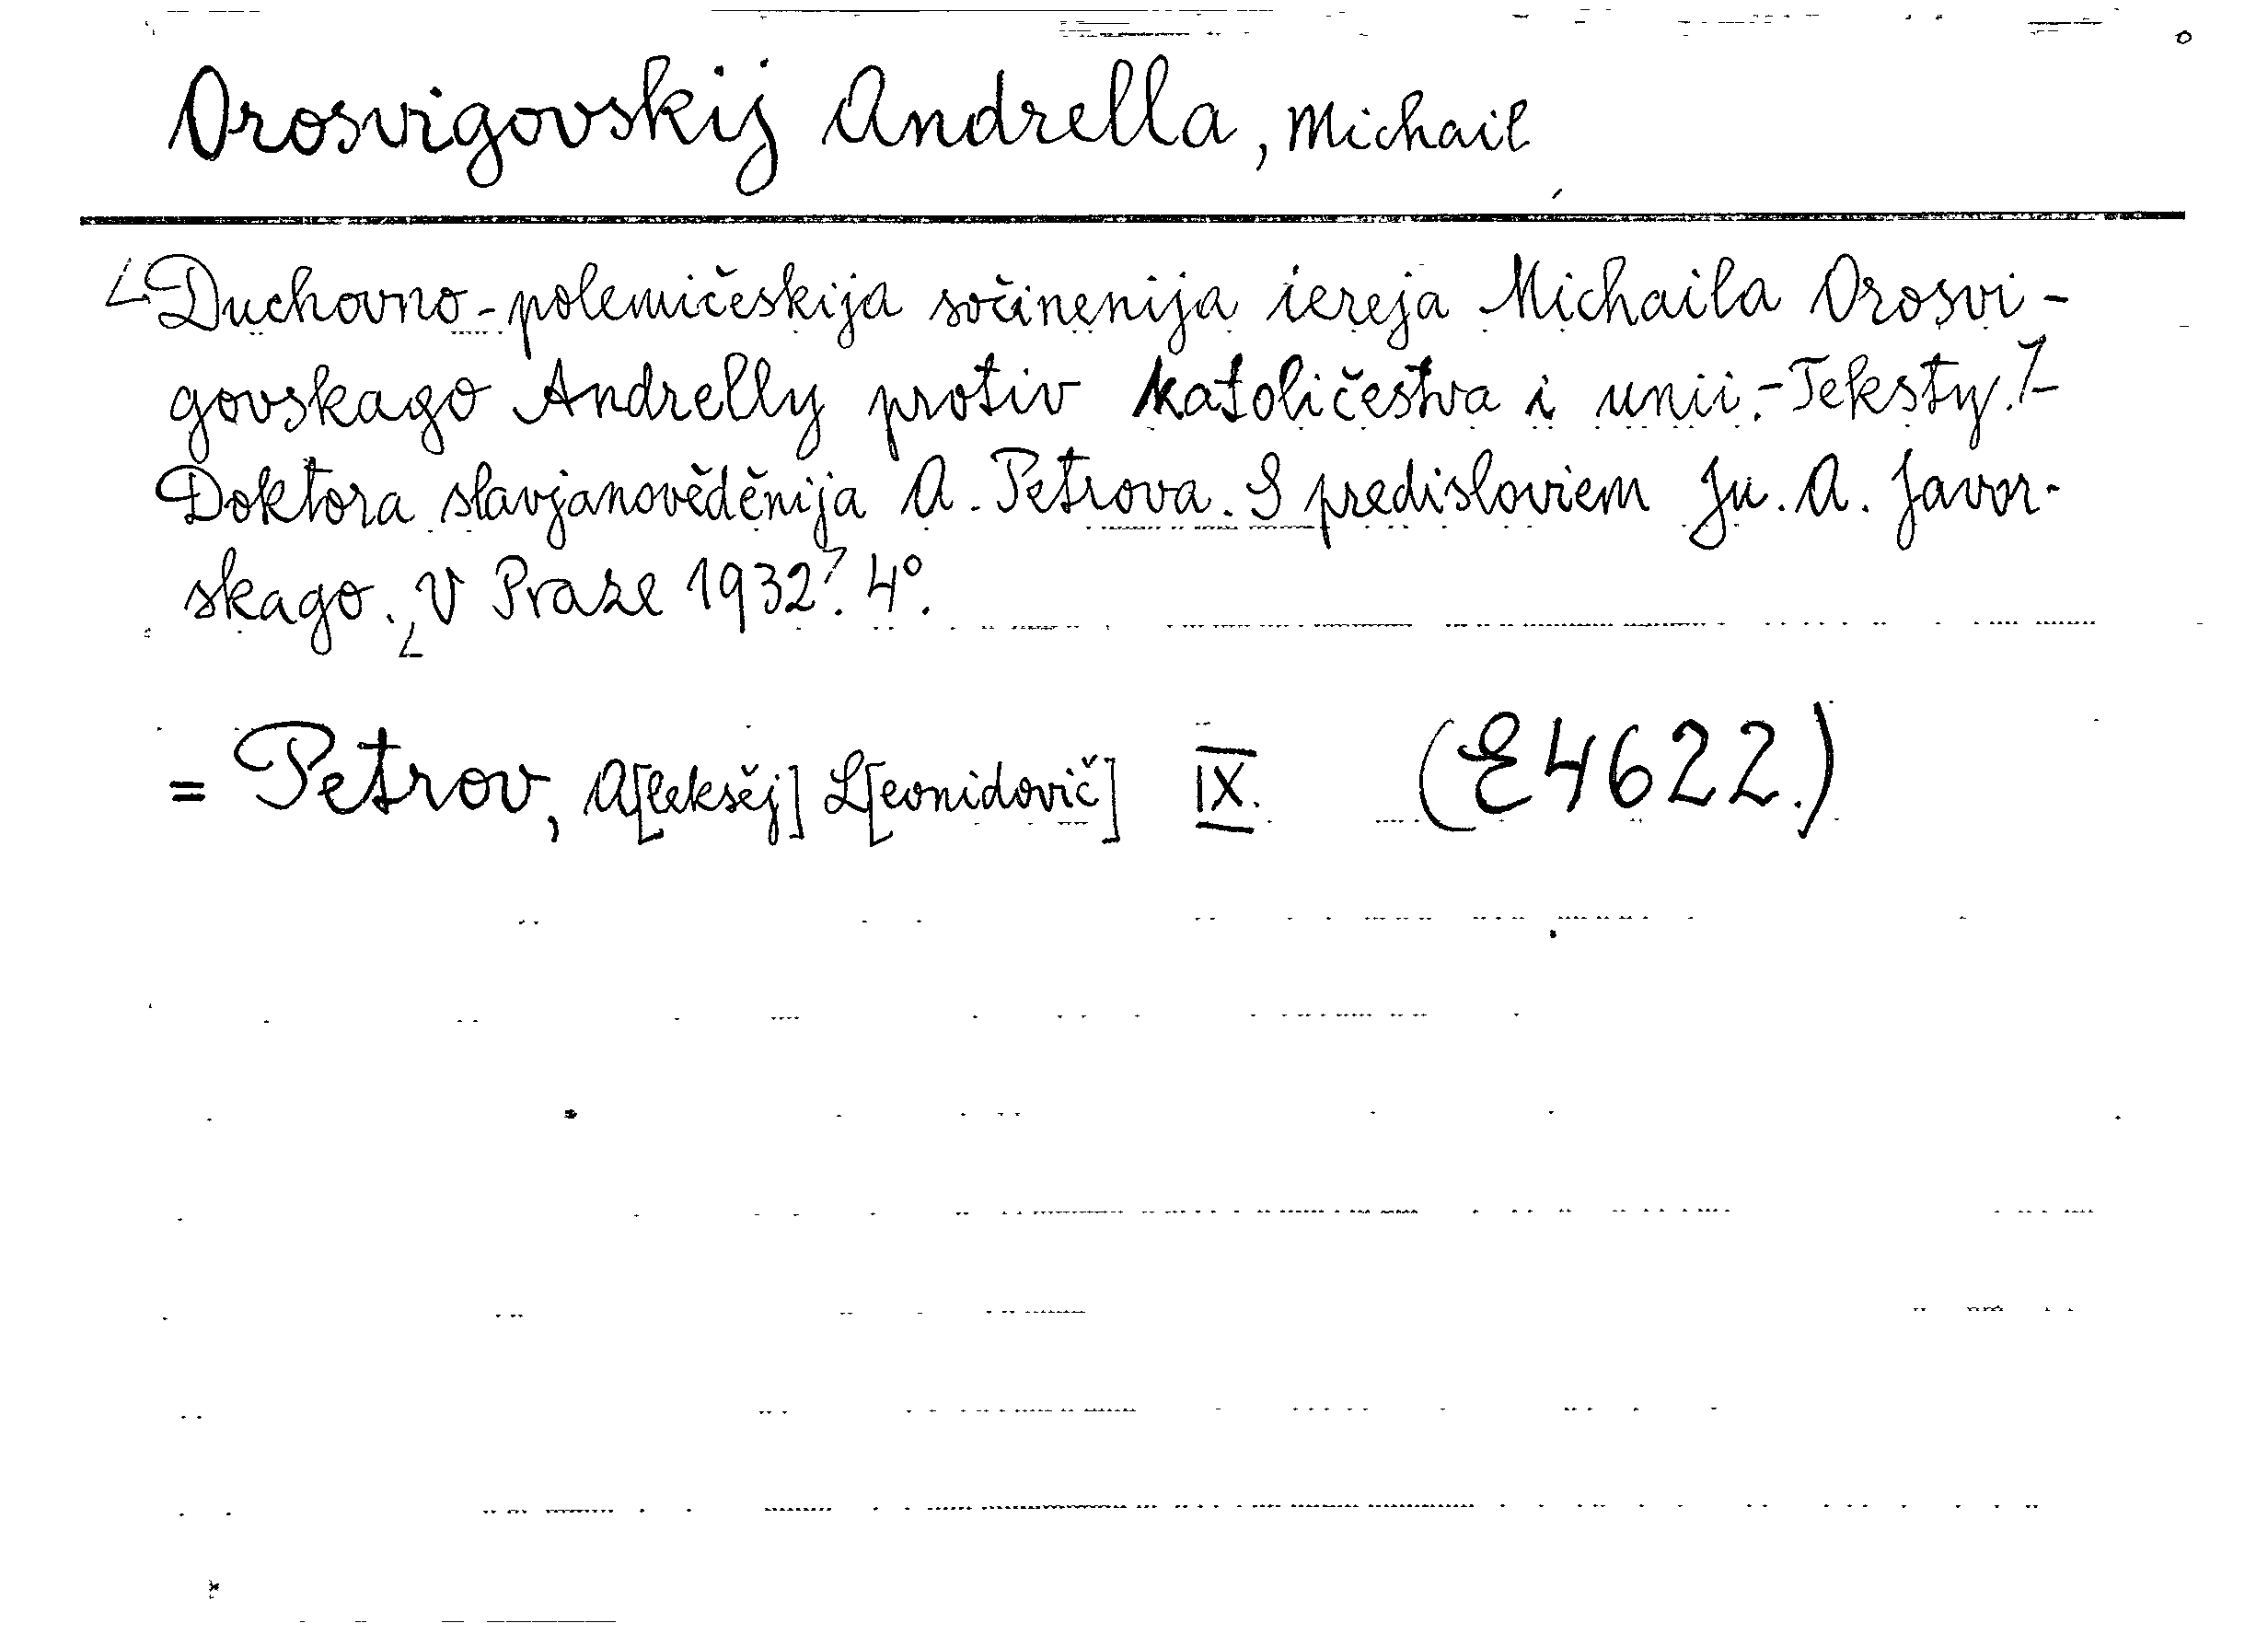 Orosvigovskij Andrella, Michail
Duchovno-polemičeskija sočinenija iereja Michaila Orosvi-
govskago Andrelly protiv katoličestva i unii.-Teksty.-
Doktora slavjanověděnija A. Petrova. S predisloviem Ju. A. Javor-
skago. V Praze 1932. 4°.
= Petrov, A[leksěj] L[eonidovič] IX. (E4622.)